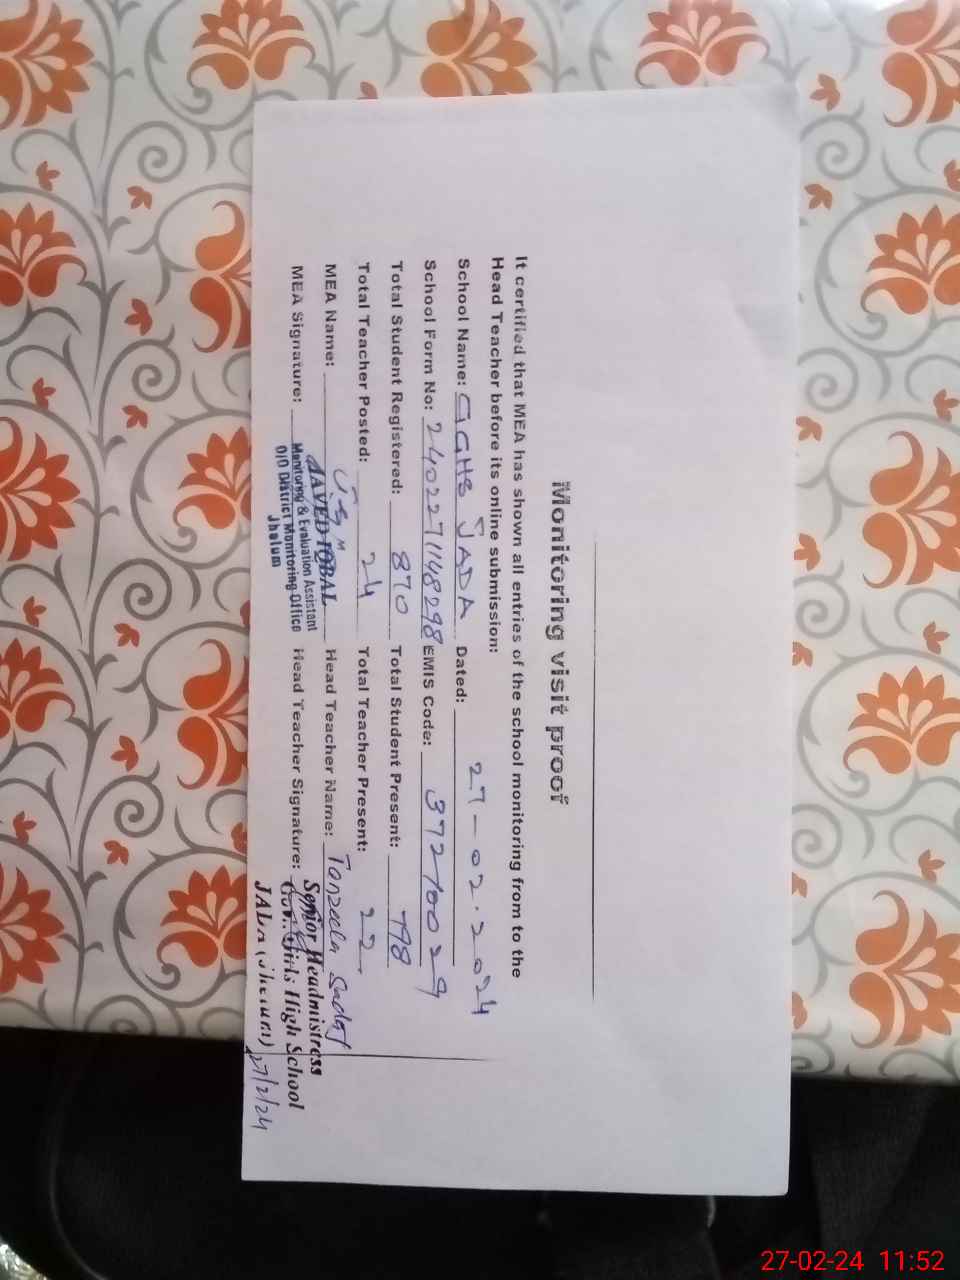 Monitoring visit proof
It certified that MEA has shown all entries of the school monitoring from to the
Head Teacher before its online submission:
School Name: GGHS JADA Dated: 27-02.2024
School Form No: 2402271148298 EMIS Code: 37210029
Total Student Registered: 870 Total Student Present: 798
Total Teacher Posted: 24 Total Teacher Present: 22
MEA Name: JAVED IQBAL Head Teacher Name: Tanzeela Sadaf
MEA Signature: Head Teacher Signature:
Monitoring & Evaluation Assistant
O/O District Monitoring Office
Jhelum
Senior Headmistress
Govt. Girls High School
JADA (Jhelum) 27/2/24
27-02-24 11:52